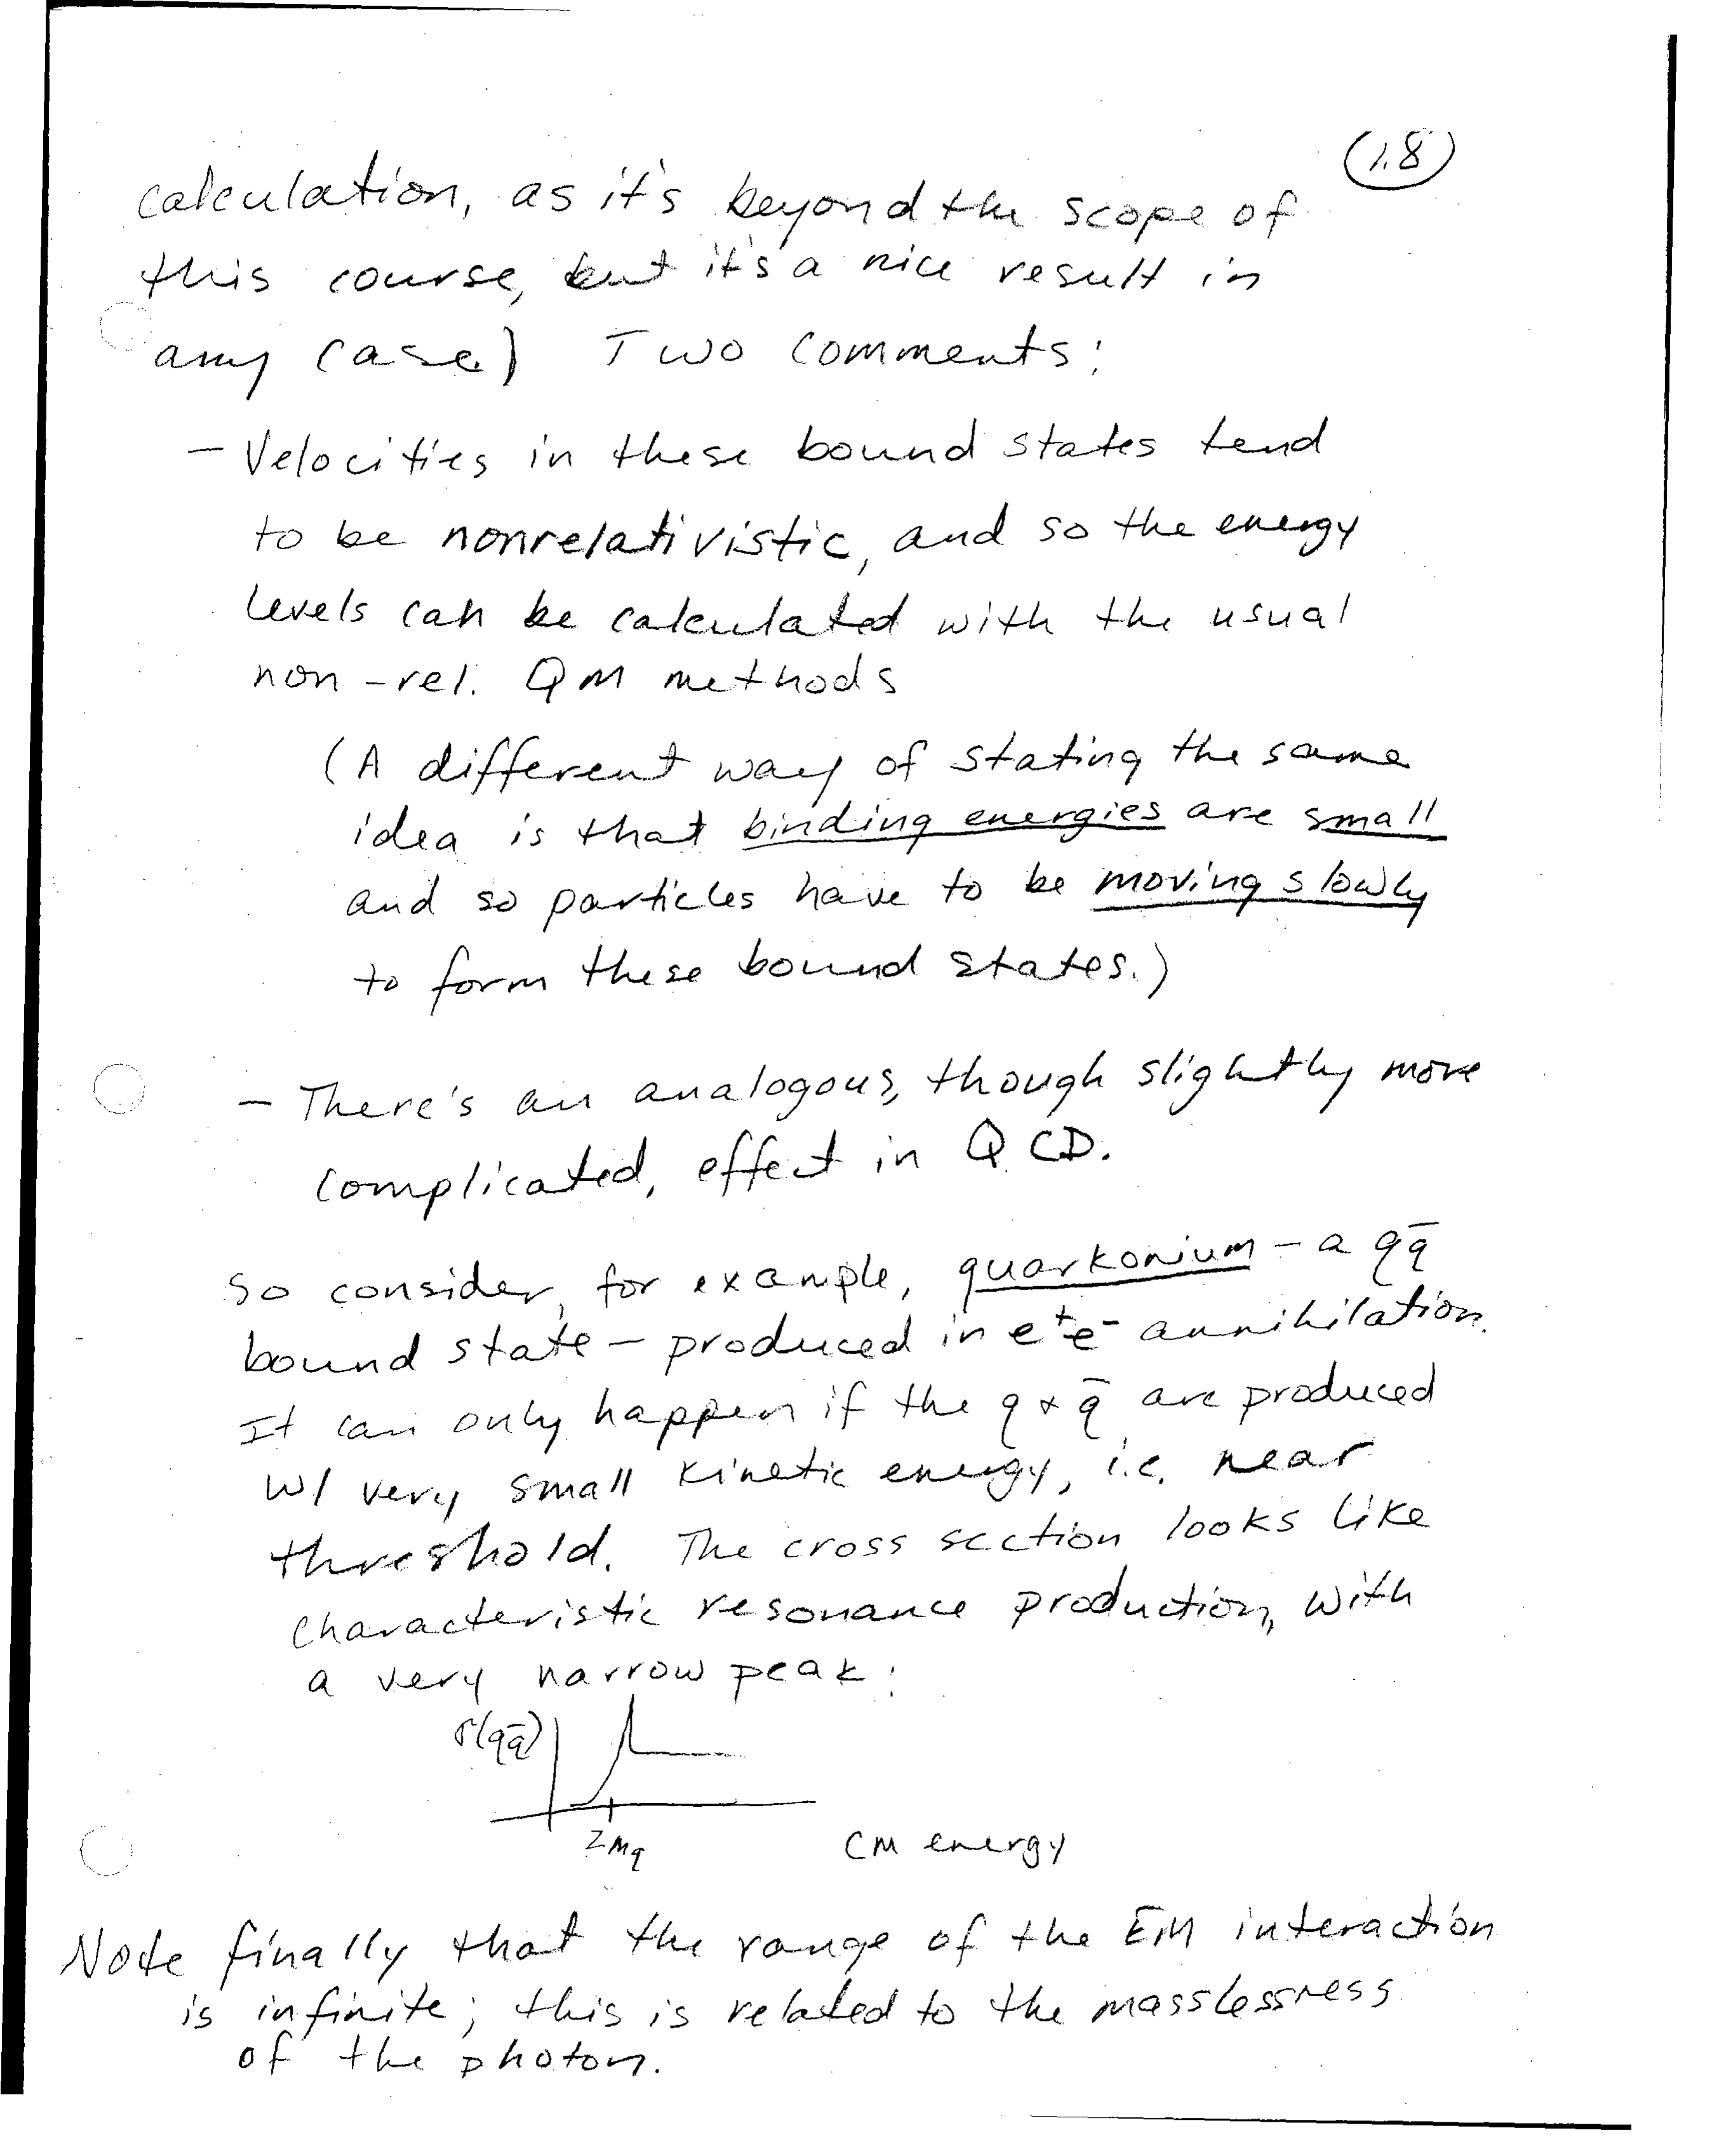 (1.8)
calculation, as it's beyond the scope of
this course, but it's a nice result in
any case) Two comments:
- Velocities in these bound states tend
to be nonrelativistic, and so the energy
levels can be calculated with the usual
non-rel. QM methods
(A different way of stating the same
idea is that binding energies are small
and so particles have to be moving slowly
to form these bound states.)
- There's an analogous, though slightly more
complicated, effect in QCD.
So consider, for example, quarkonium - a qq̄
bound state - produced in e⁺e⁻ annihilation.
It can only happen if the q & q̄ are produced
w/ very small kinetic energy, i.e. near
threshold. The cross section looks like
characteristic resonance production, with
a very narrow peak:
σ(qq̄)
2mq
CM energy
Note finally that the range of the EM interaction
is infinite; this is related to the masslessness
of the photon.